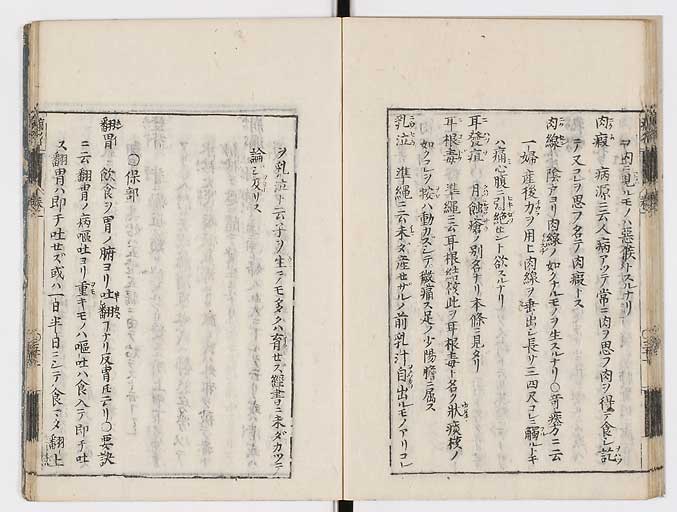 ヲ内ニ見ルモノハ惡候トスルナリ
肉癥 病源ニ云人病アツテ常ニ肉ヲ思フ肉ヲ得テ食シ訖
テ又コレヲ思フ名テ肉癥トス
肉線 陰戸ヨリ肉線ノ如クナルモノヲ生スルナリ〇奇疾方ニ云
一婦産後力ヲ用ヒ肉線ヲ垂出シ長サ三四尺コレニ觸ルトキ
ハ痛心腹ニ引絶セント欲スルナリ
耳聾疽 月蝕瘡ノ別名ナリ本條ニ見タリ
耳根毒 準繩ニ云耳根結核此ヲ耳根毒ト名ク狀痰核ノ
如クコレヲ按ハ動カズシテ微痛ス足ノ少陽膽ニ屬ス
乳泣 準繩ニ云未ダ産セザルノ前乳汁自出ルモノアリコレ
ヲ乳泣ト云子ヲ生テモ多クハ育セズ經書ニ未ダカツテ
論シ及バス
〇保部
翻胃 飲食ヲ胃ノ腑ヨリ吐翻スナリ反胃ニ同シ〇要訣
ニ云翻胃ノ病嘔吐ヨリ重キモノハ嘔吐ハ食入テ即チ吐
ス翻胃ハ即チ吐セズ或ハ一日半日ニシテ食マタ翻上